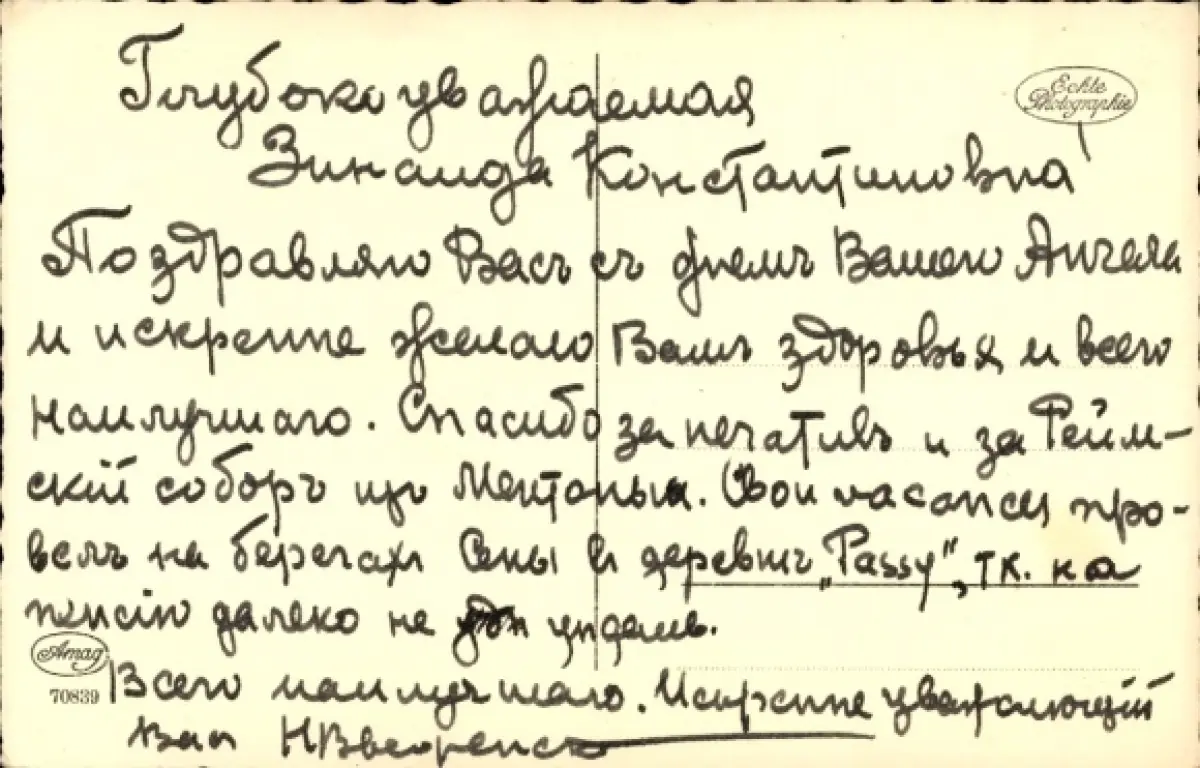 Глубокоуважаемая
Echte
Photographie
Зинаида Константиновна!
Поздравляю Васъ съ днемъ Вашего Ангела
и искренне желаю Вамъ здоровья и всего
наилучшаго. Спасибо за и за Рейм-
скій соборъ Ментоны. Свои vacances про-
велъ на берегахъ Сены въ деревнѣ „Passy”, тк. на
пенсію далеко не уѣдешь.
Amag
70839
Всего наилучшаго. Искренне уважающій
Вас